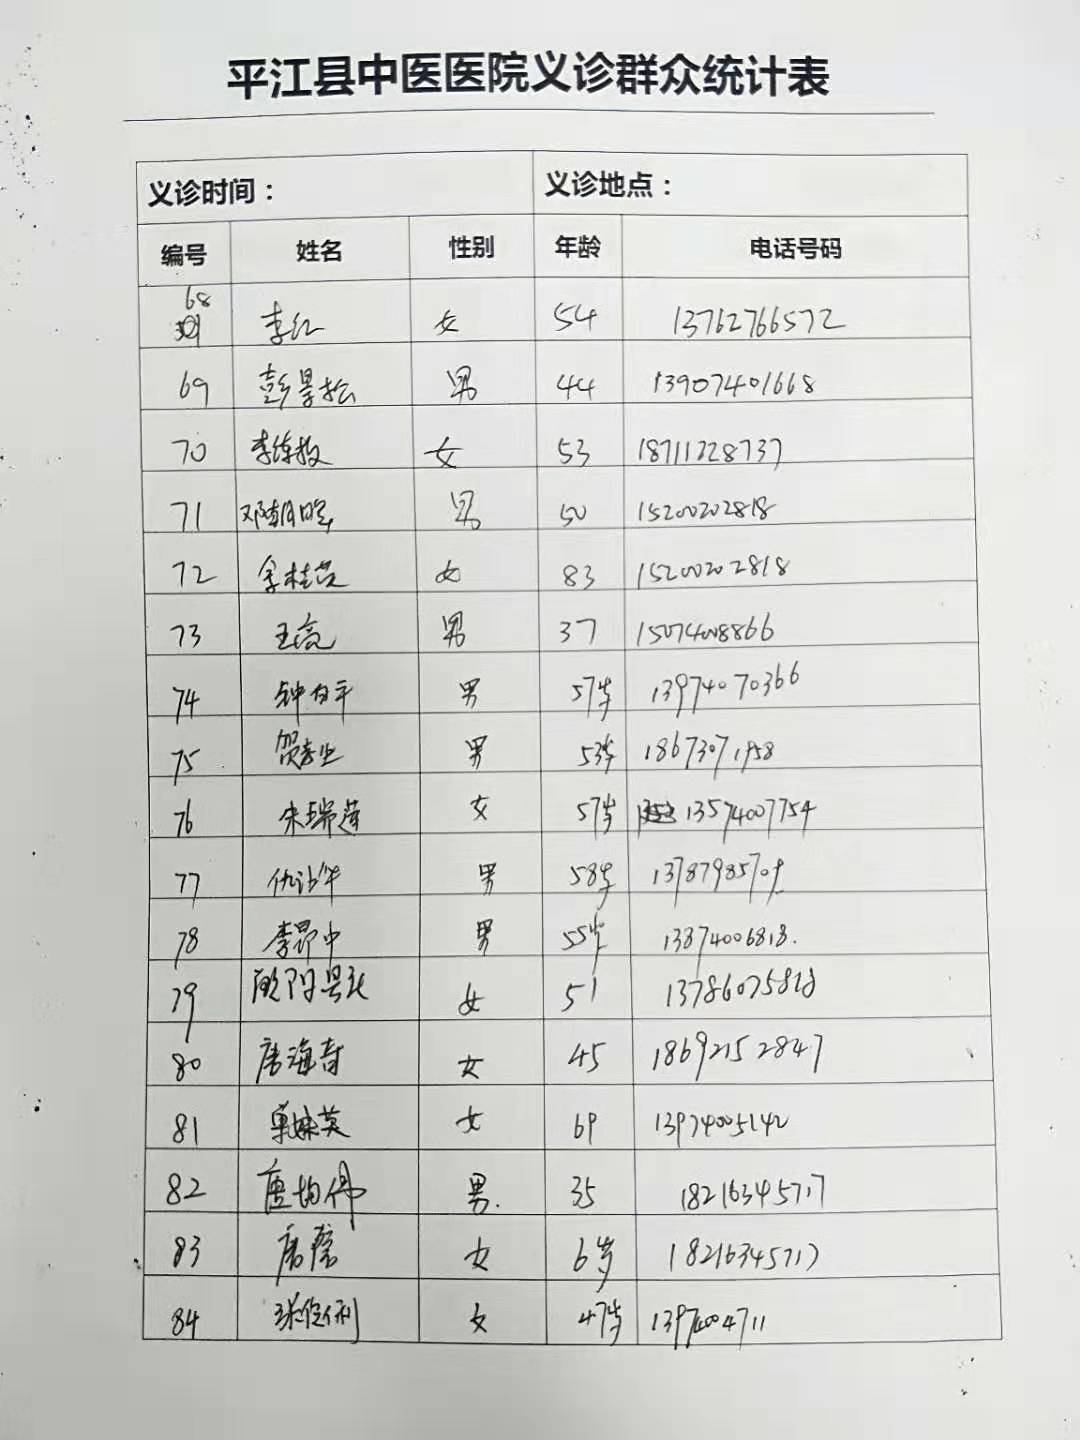 平江县中医医院义诊群众统计表
义诊时间： 义诊地点：
编号 姓名 性别 年龄 电话号码
68 李红 女 54 13762766572
69 彭昙松 男 44 13907401668
70 女 53 18711228737
71 男 50 15200202818
72 女 83 15200202818
73 王亮 男 37 15074008866
74 男 57岁 13974070366
75 男 53岁 18673071958
76 朱瑞莲 女 57岁 13574007754
77 男 58岁 13787985709
78 李昂中 男 55岁 13874006818.
79 女 51 13786075828
80 唐海奇 女 45 18692152847
81 单妹英 女 69 13974005142
82 唐均伟 男. 35 18216345717
83 女 6岁 18216345717
84 女 47岁 13974004711